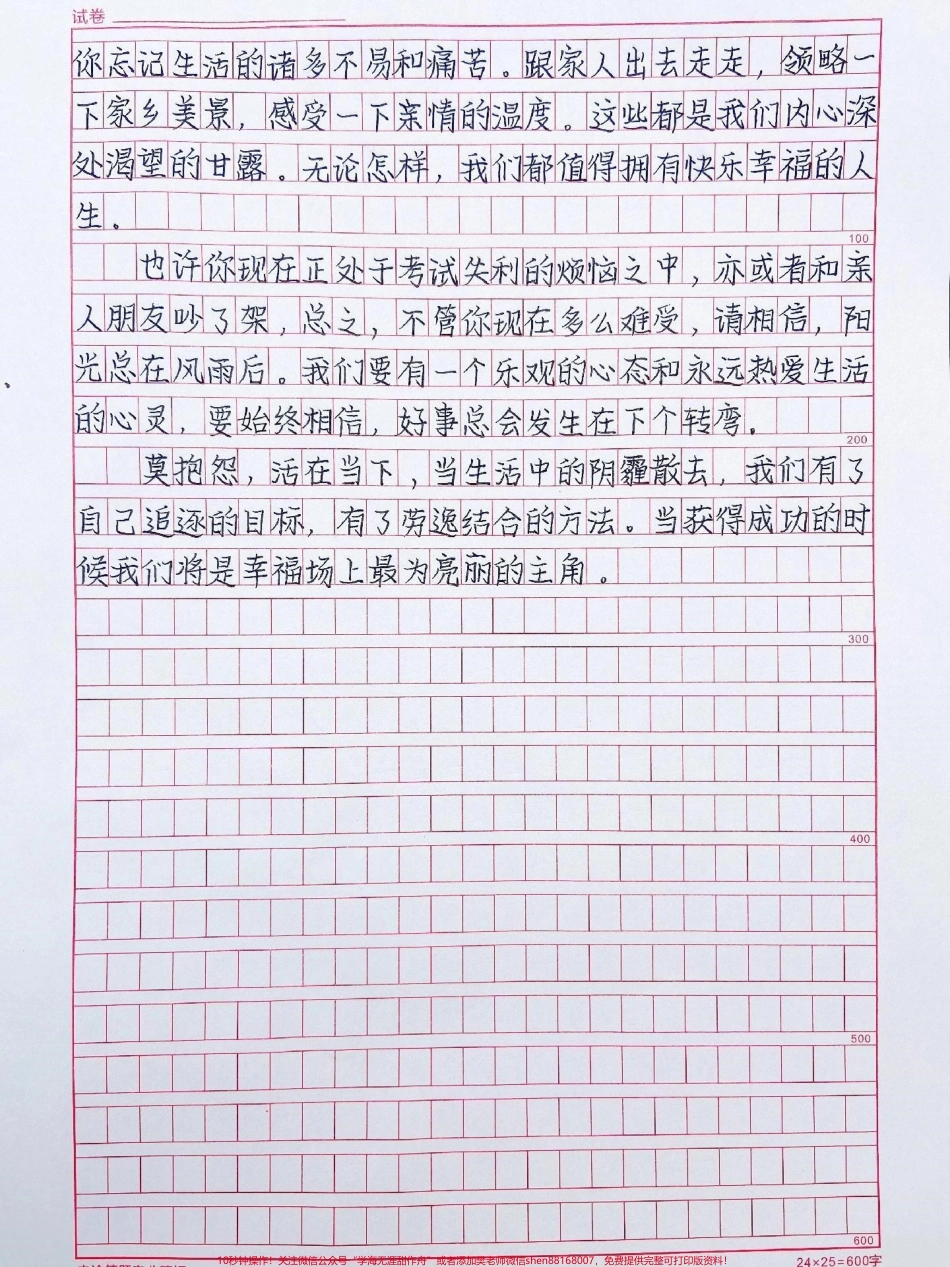 试卷
你忘记生活的诸多不易和痛苦。跟家人出去走走，领略一
下家乡美景，感受一下亲情的温度。这些都是我们内心深
处渴望的甘露。无论怎样，我们都值得拥有快乐幸福的人
生。
100
也许你现在正处于考试失利的烦恼之中，亦或者和亲
人朋友吵了架，总之，不管你现在多么难受，请相信，阳
光总在风雨后。我们要有一个乐观的心态和永远热爱生活
的心灵，要始终相信，好事总会发生在下个转弯。
200
莫抱怨，活在当下，当生活中的阴霾散去，我们有了
自己追逐的目标，有了劳逸结合的方法。当获得成功的时
候我们将是幸福场上最为亮丽的主角。
300
400
500
600
10秒钟操作！关注微信公众号“学海无涯甜作舟”或者添加莫老师微信shen88168007，免费提供完整可打印版资料！
24×25=600字